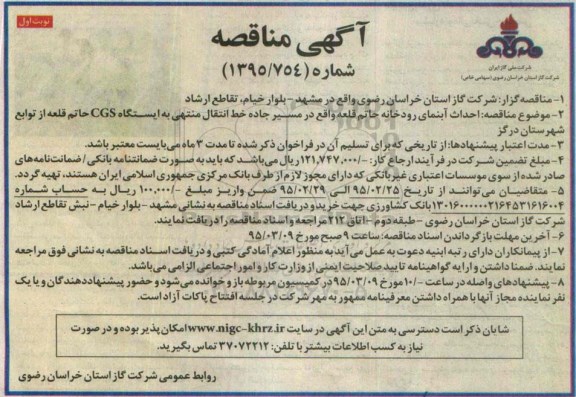 نوبت اول
آگهی مناقصه
شماره (۱۳۹۵/۷۵۴)
شرکت ملی گاز ایران
شرکت گاز استان خراسان رضوی (سهامی خاص)
۱- مناقصه گزار: شرکت گاز استان خراسان رضوی واقع در مشهد - بلوار خیام، تقاطع ارشاد
۲- موضوع مناقصه: احداث آبنمای رودخانه حاتم قلعه واقع در مسیر جاده خط انتقال منتهی به ایستگاه CGS حاتم قلعه از توابع
شهرستان درگز
۳- مدت اعتبار پیشنهادها: از تاریخی که برای تسلیم آن در فراخوان ذکر شده تا مدت ۳ ماه می‌بایست معتبر باشد.
۴- مبلغ تضمین شرکت در فرآیند ارجاع کار: ۱۲۱,۷۴۷,۰۰۰/- ریال می‌باشد که باید به صورت ضمانتنامه بانکی / ضمانت‌نامه‌های
صادر شده از سوی موسسات اعتباری غیربانکی که دارای مجوز لازم از طرف بانک مرکزی جمهوری اسلامی ایران هستند، تهیه گردد.
۵- متقاضیان می‌توانند از تاریخ ۹۵/۰۲/۲۵ الی ۹۵/۰۲/۲۹ ضمن واریز مبلغ ۱۰۰,۰۰۰/- ریال به حساب شماره
بانک کشاورزی جهت خرید و دریافت اسناد مناقصه به نشانی مشهد - بلوار خیام - نبش تقاطع ارشاد
شرکت گاز استان خراسان رضوی - طبقه دوم - اتاق ۲۱۲ مراجعه و اسناد مناقصه را دریافت نمایند.
۶- آخرین مهلت بازگرداندن اسناد مناقصه: ساعت ۹ صبح مورخ ۹۵/۰۳/۰۹
۷- از پیمانکاران دارای رتبه ابنیه دعوت به عمل می‌آید به منظور اعلام آمادگی کتبی و دریافت اسناد مناقصه به نشانی فوق مراجعه
نمایند. ضمنا داشتن و ارایه گواهینامه تایید صلاحیت ایمنی از وزارت کار و امور اجتماعی الزامی می‌باشد.
۸- پیشنهادهای واصله در ساعت ۱۰/۰۰ مورخ ۹۵/۰۳/۰۹ در کمیسیون مربوطه باز و خوانده می‌شود و حضور پیشنهاددهندگان و یا یک
نفر نماینده مجاز آنها با همراه داشتن معرفینامه ممهور به مهر شرکت در جلسه افتتاح پاکات آزاد است.
شایان ذکر است دسترسی به متن این آگهی در سایت www.nigc-khrz.ir امکان پذیر بوده و در صورت
نیاز به کسب اطلاعات بیشتر با تلفن: ۳۷۰۷۲۲۱۲ تماس بگیرید.
روابط عمومی شرکت گاز استان خراسان رضوی